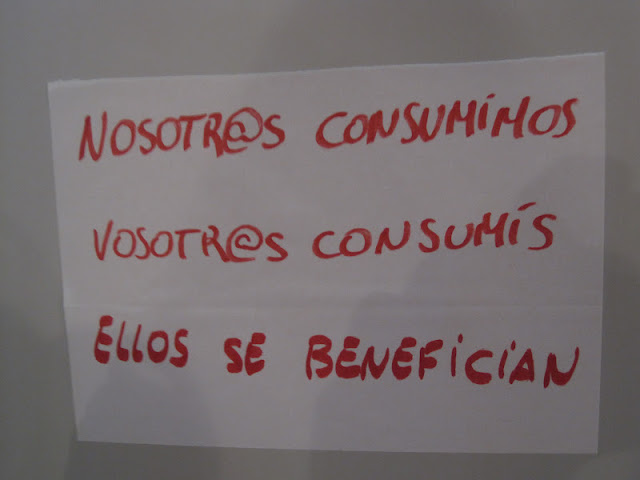 NOSOTR@S CONSUMIMOS
VOSOTR@S CONSUMÍS
ELLOS SE BENEFICIAN